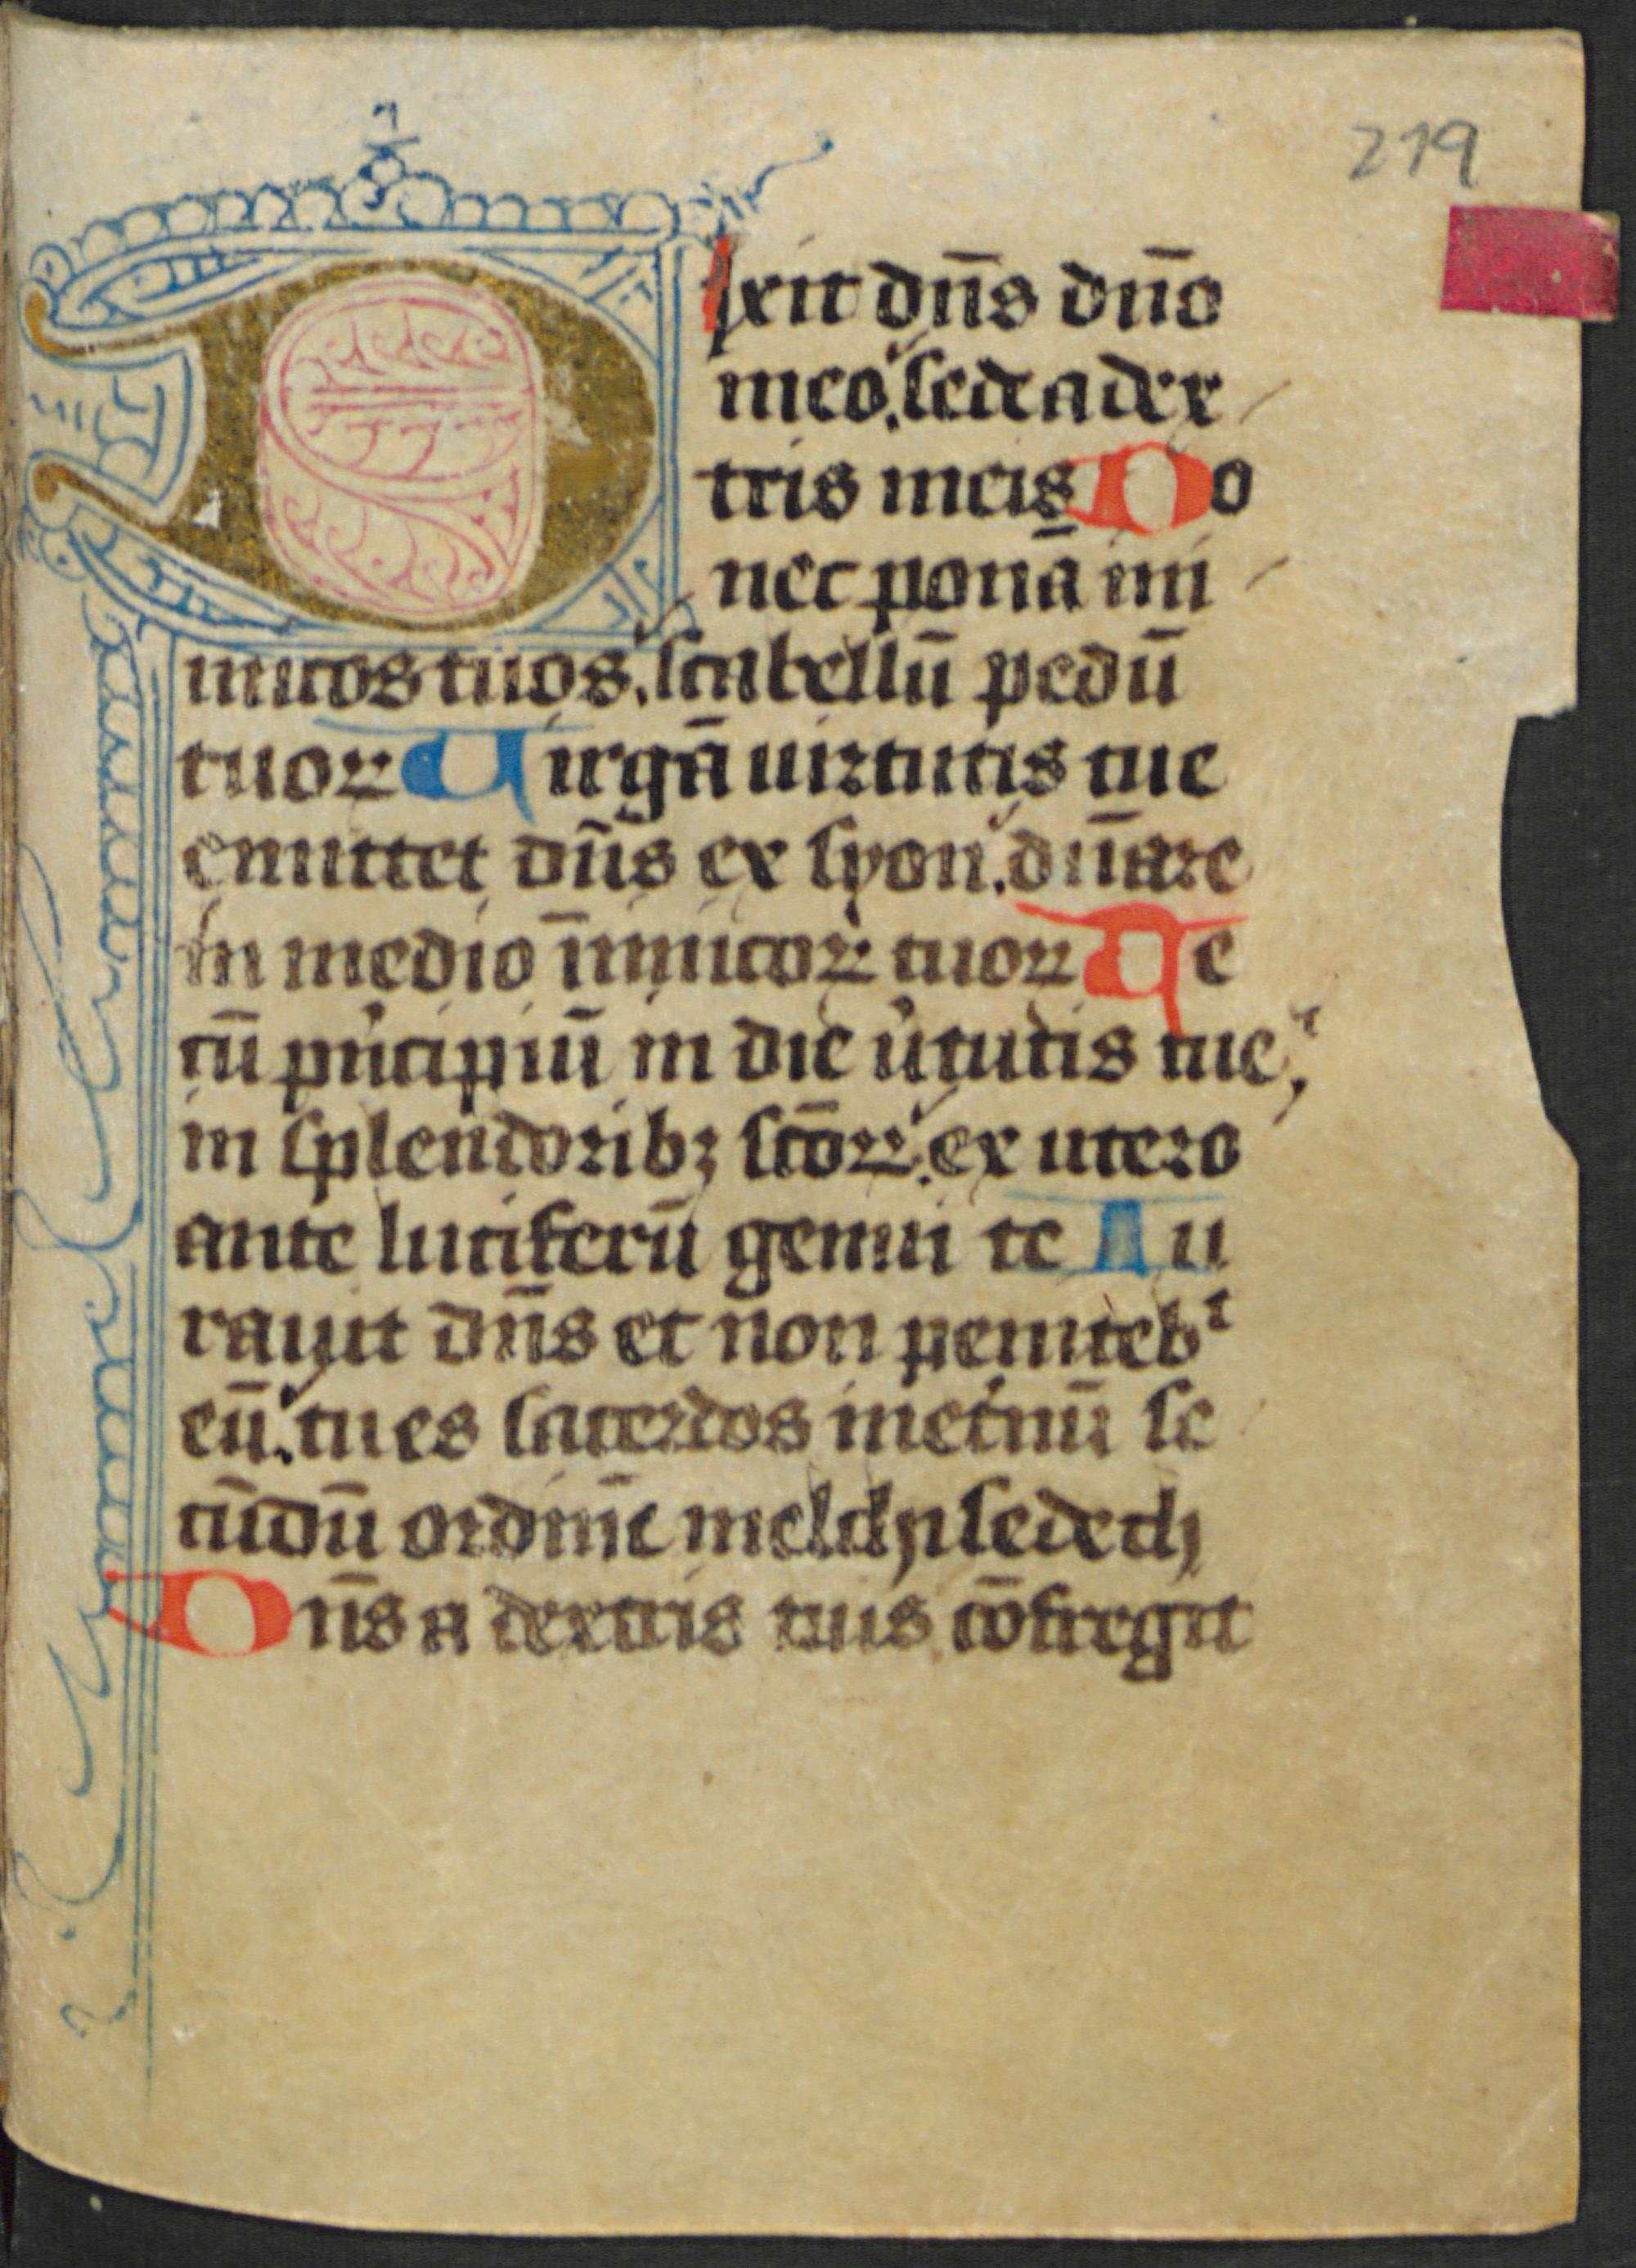 219
Dixit dn̄s dn̄o
meo. sede a dex
tris meis Do
nec ponā ini
micos tuos. scabellū pedū
tuoꝝ Uirgā uirtutis tue
emittet dn̄s ex syon. dn̄are
in medio īnimicoꝝ tuoꝝ Te
cū pͥncipiū in die uͥtutis tue
in splendoribꝫ sc̄oꝝ. ex utero
ante luciferū genui te Iu
rauit dn̄s et non penitebᵗ
eū. tu es sacerdos inet̾nū se
cūdū ordinē melchysedech
Dn̄s a dextris tuis cōfregit